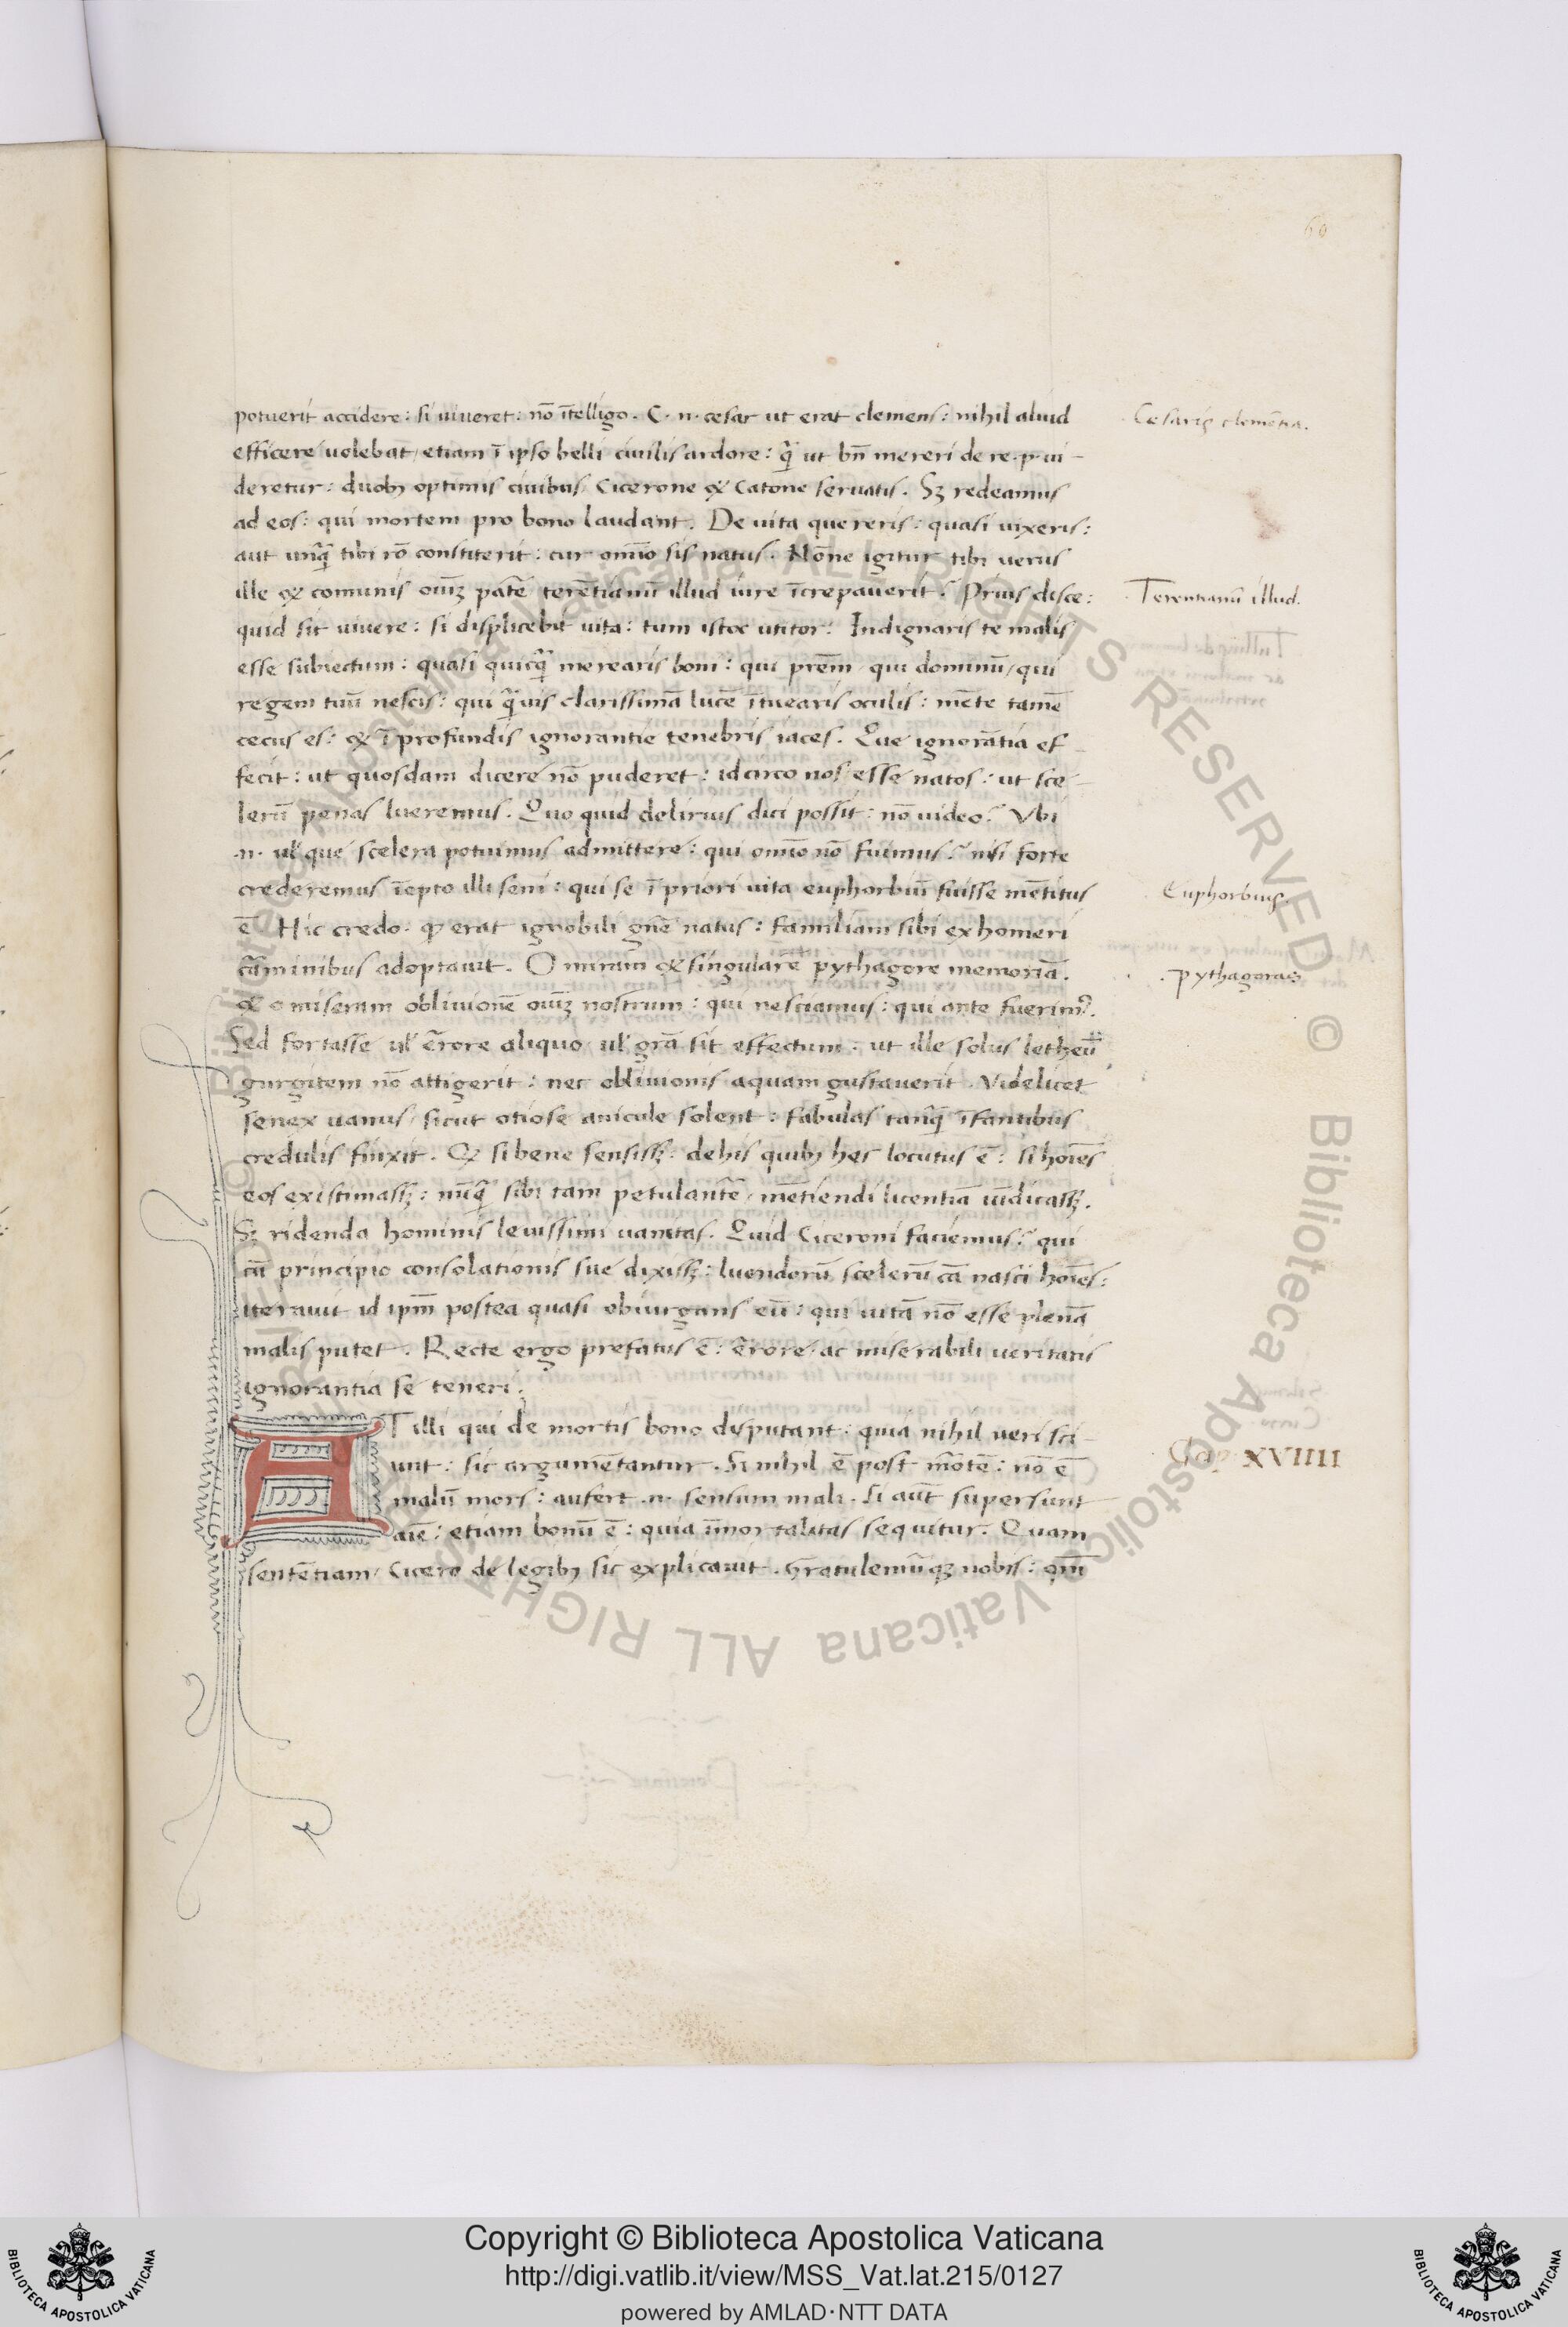 60
potuerit accidere: si uiueret: nō ītelligo. C. n. cesar ut erat clemens: nihil aliud
Cesaris clemētia.
efficere uolebat, etiam ī ipso belli ciuilis ardore: q̄ ut bn̄ mereri de re. p. ui-
deretur: duobꝫ optimis ciuibus, Cicerone & Catone seruatis. Sꝫ redeamus
ad eos: qui mortem pro bono laudant. De uita quereris: quasi uixeris:
aut unq̄ tibi rō constiterit: cur omīo sis natus. Nōne igitur tibi uerus
ille & comunis oīuꝫ patē terētianū illud iure īcrepauerit. Prius disce:
Terentianū illud.
quid sit uiuere: si displicebit uita: tum istoc utitor. Indignaris te malis
esse subiectum: quasi quicq̄ merearis boni: qui prēm, qui dominū, qui
regem tuū nescis: qui q̄uis clarissimā lucē ītuearis oculis: mēte tamē
cecus es: & ī profundis ignorantie tenebris iaces. Que ignorātia ef
fecit: ut quosdam dicere nō puderet: idcirco nos esse natos: ut sce-
lerū penas lueremus. Quo quid delirius dici possit: nō uideo. Vbi
.n. ul' que scelera potuimus admittere: qui omīo nō fuimus? nisi forte
crederemus īepto illi seni: qui se ī priori uita euphorbiū fuisse mētitus
Euphorbius.
ē. Hic credo. ꝙ erat ignobili gn̄e natus: familiam sibi ex homeri
cārminibus adoptauit. O miram & singularē pythagore memoriā.
.pythagoras
& o miseram obliuionē oīuꝫ nostrum: qui nesciamus: qui ante fuerimꝰ.
Sed fortasse ul' ērrore aliquo ul' grā sit effectum: ut ille solus letheū
gurgitem nō attigerit: nec obliuionis aquam gustauerit. Videlicet
senex uanus, sicut otiose anicule solent: fabulas tanq̄ īfantibus
credulis finxit. Q si bene sensissꝫ: de his quibꝫ hec locutus ē: si hoīes
eos existimassꝫ: nūq̄ sibi tam petulantē, mētiendi licentiā uīdicassꝫ.
Sꝫ ridenda hominis leuissimi uanitas. Quid Ciceroni faciemus? qui
cū principio consolationis sue dixissꝫ: luendorū scelerū cā nasci hoīes:
iterauit id ipm̄ postea quasi obiurgans eū: qui uitā nō esse plenā
malis putet. Recte ergo prefatus ē: ērrore, ac miserabili ueritatis
ignorantia se teneri.
AT illi qui de mortis bono disputant: quia nihil ueri sci-
Cap. XVIIII
unt: sic argumētantur. Si nihil ē post mōtē: nō ē
malū mors: aufert .n. sensum mali. Si aūt supersunt
aīe: etiam bonū ē: quia īmortalitas sequitur. Quam
sentētiam, Cicero de legibꝫ sic explicauit. Gratulemūqꝫ nobis: qm̄
Copyright © Biblioteca Apostolica Vaticana
http://digi.vatlib.it/view/MSS_Vat.lat.215/0127
powered by AMLAD·NTT DATA
BIBLIOTECA APOSTOLICA VATICANA
BIBLIOTECA APOSTOLICA VATICANA